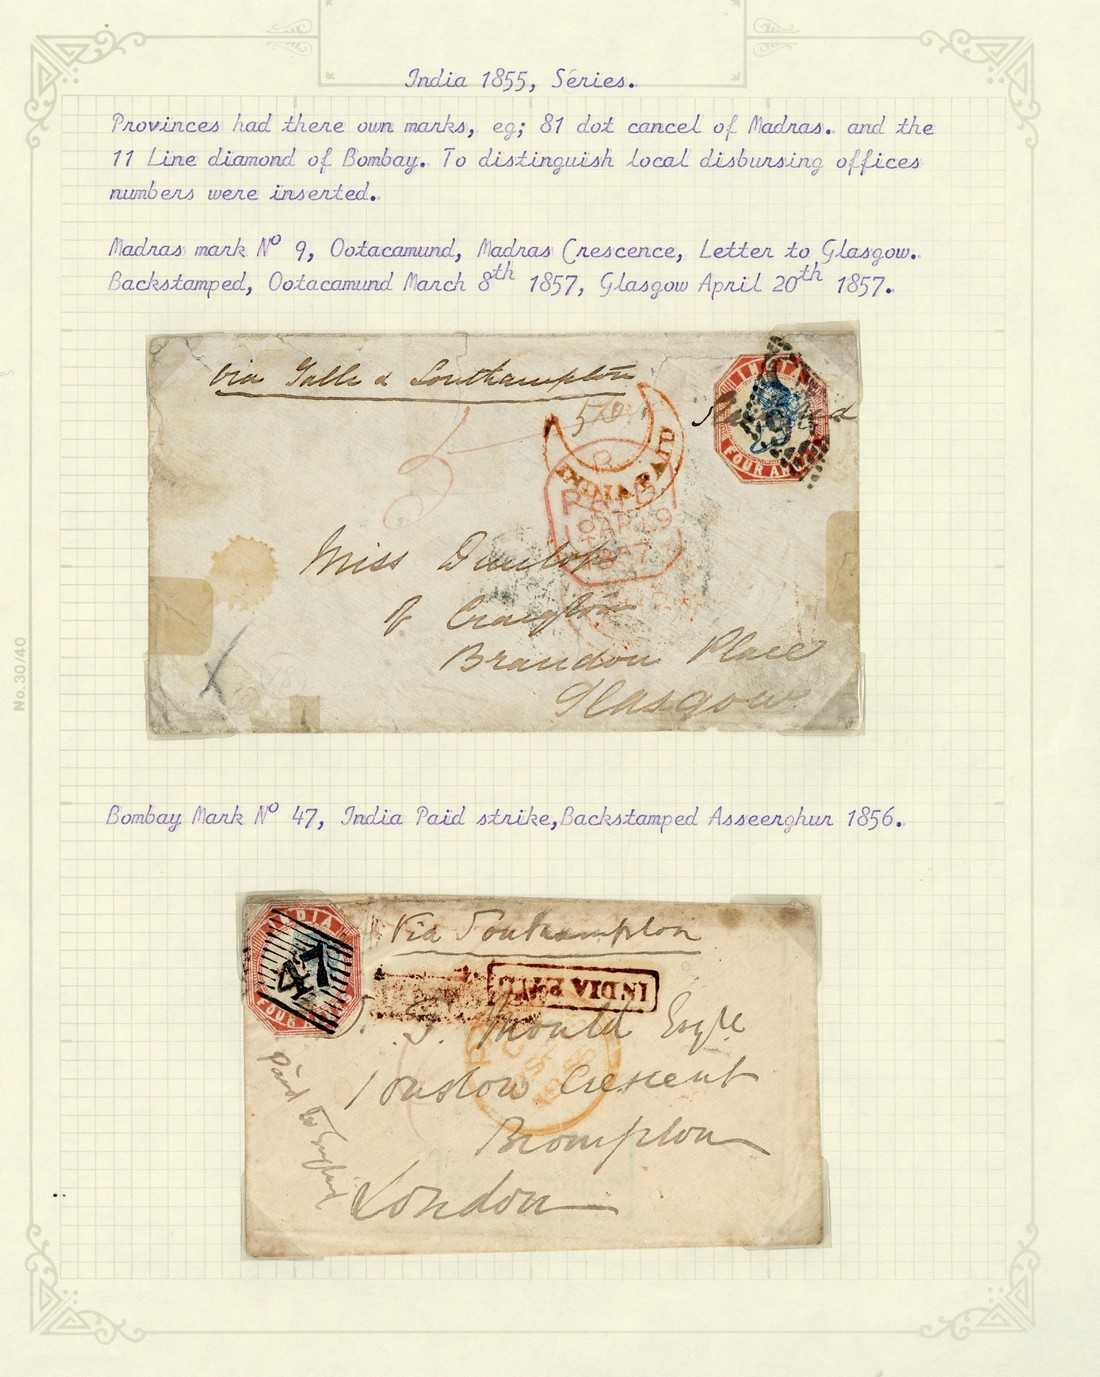 India 1855, Series.
Provinces had there own marks, eg; 81 dot cancel of Madras. and the
11 Line diamond of Bombay. To distinguish local disbursing offices
numbers were inserted.
Madras mark Nº 9, Ootacamund, Madras Crescence, Letter to Glasgow.
Backstamped, Ootacamund March 8th 1857, Glasgow April 20th 1857.
via Galle & Southampton
INDIA
FOUR ANNAS
INDIA PAID
PAID
AP 19
1857
5
Miss Dunlop
of Craigton
Brandon Place
Glasgow
No. 30/40
Bombay Mark Nº 47, India Paid strike, Backstamped Asseerghur 1856.
INDIA
47
Via Southampton
INDIA PAID
Mould Esqre
Onslow Crescent
Brompton
London
Paid to England